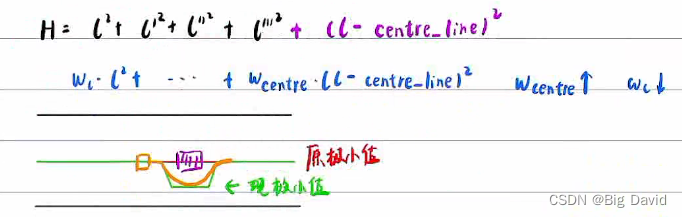 H = l² + l'² + l''² + l'''² + (l - centre_line)²
w_l · l² + ··· + w_centre · (l - centre_line)² w_centre ↑ w_l ↓
原极小值
← 现极小值
CSDN @Big David